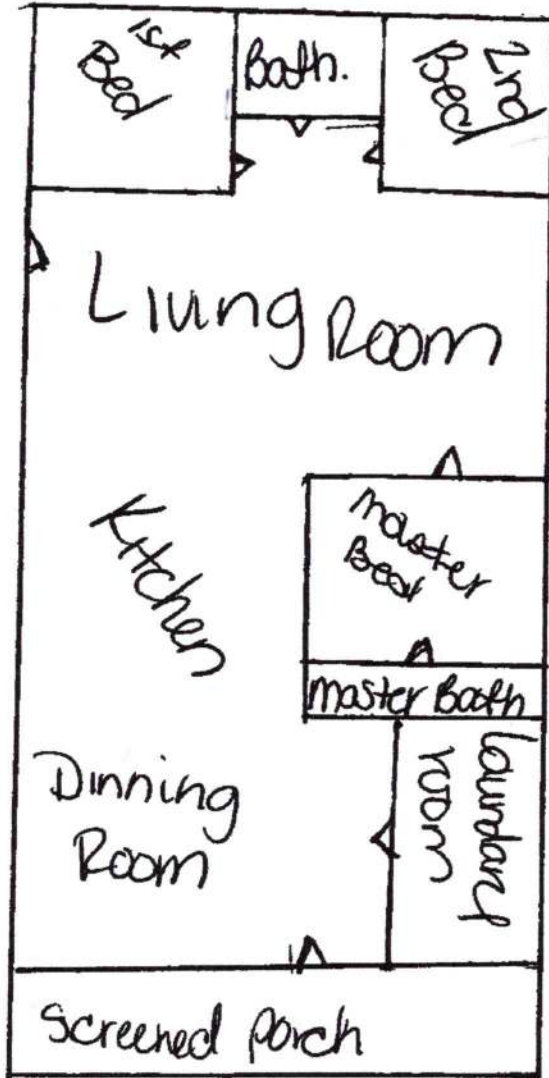 1st
Bed
Bath.
2nd
Bed
Living Room
Kitchen
master
Bed
master Bath
Dinning
Room
laundary
room
Screened Porch